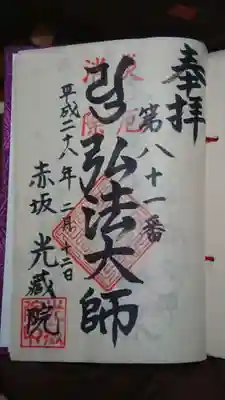 奉拝
第八十一番
弘法大師
平成二十八年 二月十二日
赤坂 光蔵院